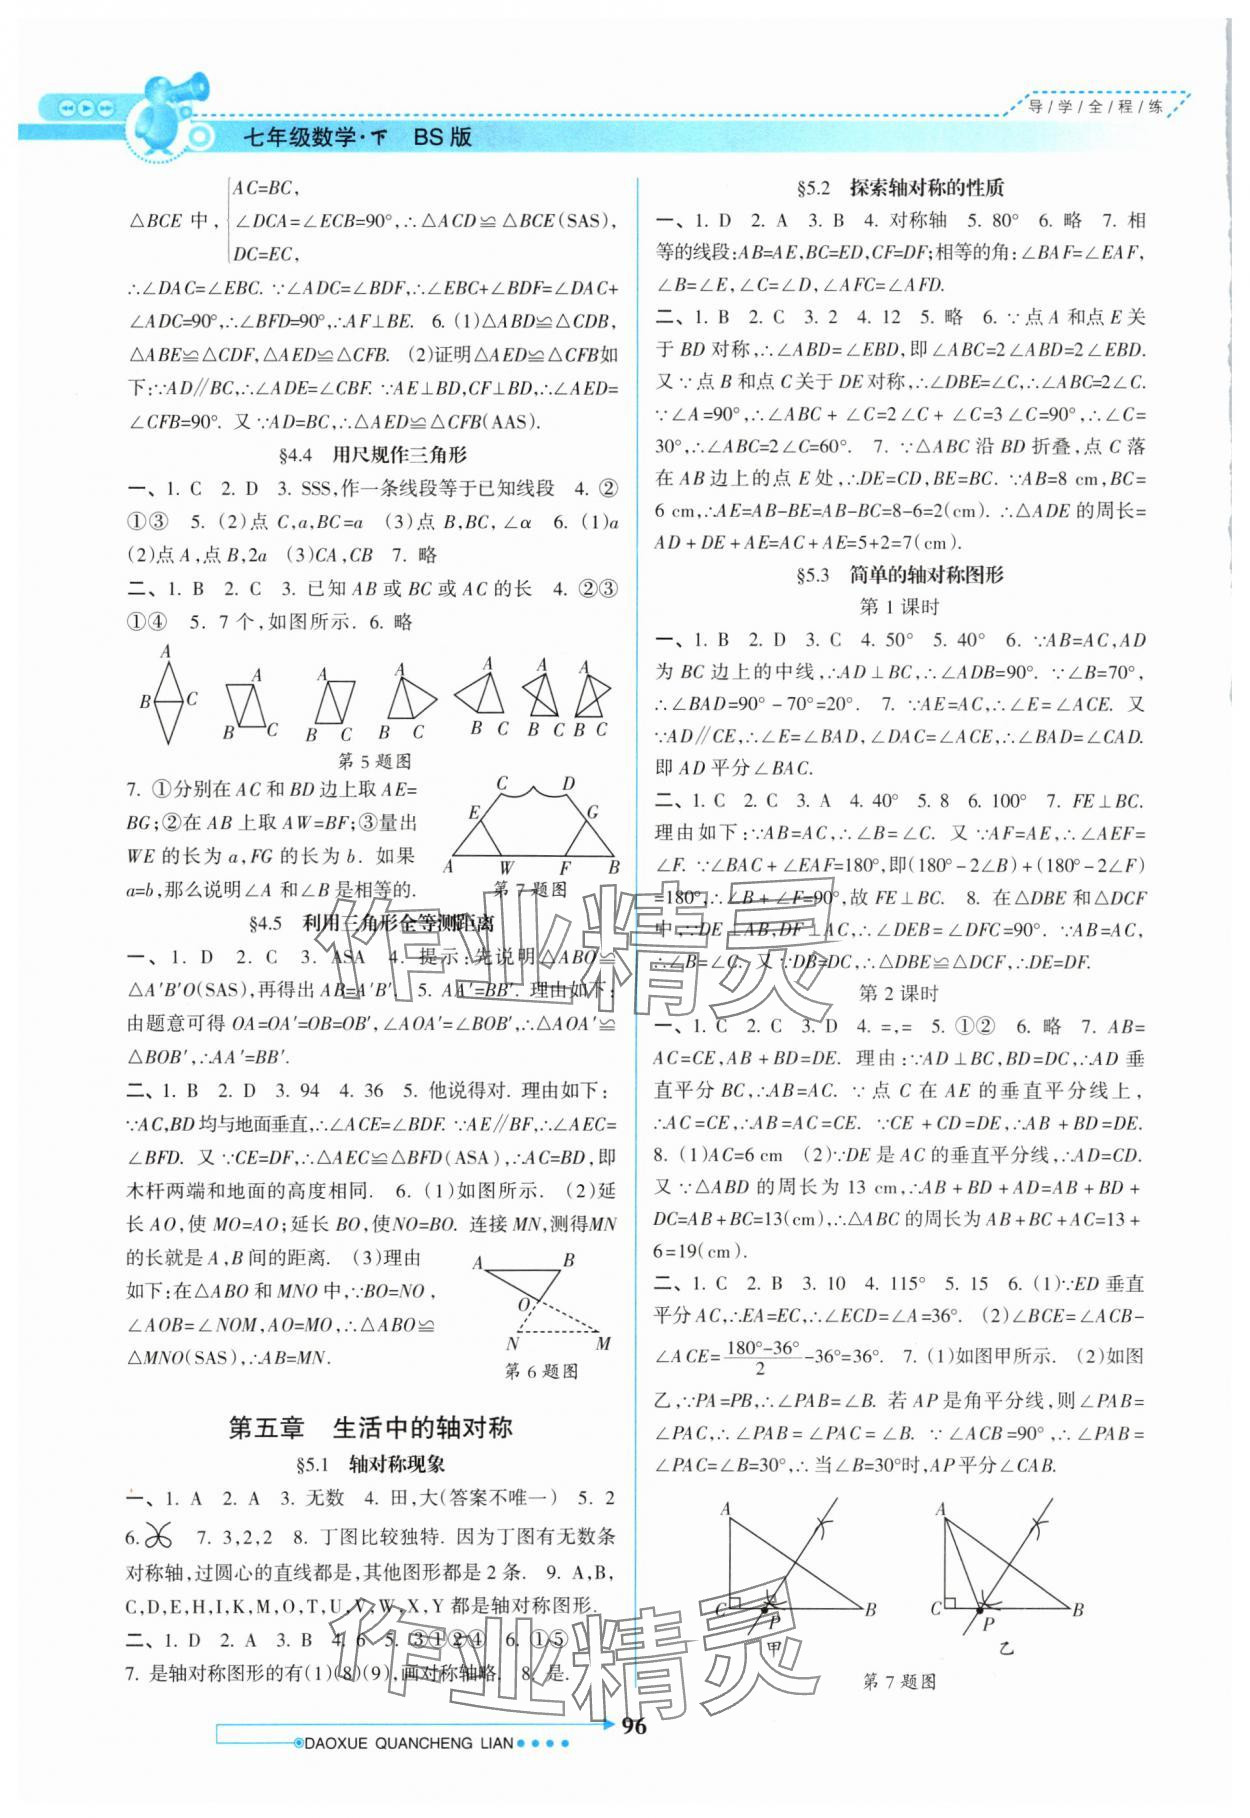 导/学/全/程/练
七年级数学·下 BS版
AC=BC,
△BCE中, ∠DCA=∠ECB=90°,∴△ACD≌△BCE(SAS),
DC=EC,
∴∠DAC=∠EBC. ∵∠ADC=∠BDF,∴∠EBC+∠BDF=∠DAC+
∠ADC=90°,∴∠BFD=90°,∴AF⊥BE. 6. (1)△ABD≌△CDB,
△ABE≌△CDF,△AED≌△CFB. (2)证明△AED≌△CFB如
下:∵AD∥BC,∴∠ADE=∠CBF. ∵AE⊥BD,CF⊥BD,∴∠AED=
∠CFB=90°. 又∵AD=BC,∴△AED≌△CFB(AAS).
§4.4 用尺规作三角形
一、1. C 2. D 3. SSS,作一条线段等于已知线段 4. ②
①③ 5. (2)点C,a,BC=a (3)点B,BC,∠α 6. (1)a
(2)点A,点B,2a (3)CA,CB 7. 略
二、1. B 2. C 3. 已知AB或BC或AC的长 4. ②③
①④ 5. 7个,如图所示. 6. 略
A A A A A A A
B C B C B C B C B C B C B C
第5题图
7. ①分别在AC和BD边上取AE=
BG;②在AB上取AW=BF;③量出
WE的长为a,FG的长为b. 如果
a=b,那么说明∠A和∠B是相等的.
C D
E G
A W F B
第7题图
§4.5 利用三角形全等测距离
一、1. D 2. C 3. ASA 4. 提示:先说明△ABO≌
△A′B′O(SAS),再得出AB=A′B′. 5. AA′=BB′. 理由如下:
由题意可得OA=OA′=OB=OB′,∠AOA′=∠BOB′,∴△AOA′≌
△BOB′,∴AA′=BB′.
二、1. B 2. D 3. 94 4. 36 5. 他说得对. 理由如下:
∵AC,BD均与地面垂直,∴∠ACE=∠BDF. ∵AE∥BF,∴∠AEC=
∠BFD. 又∵CE=DF,∴△AEC≌△BFD(ASA),∴AC=BD,即
木杆两端和地面的高度相同. 6. (1)如图所示. (2)延
长AO,使MO=AO;延长BO,使NO=BO. 连接MN,测得MN
的长就是A,B间的距离. (3)理由
如下:在△ABO和MNO中,∵BO=NO,
∠AOB=∠NOM,AO=MO,∴△ABO≌
△MNO(SAS),∴AB=MN.
A B
O
N M
第6题图
第五章 生活中的轴对称
§5.1 轴对称现象
一、1. A 2. A 3. 无数 4. 田,大(答案不唯一) 5. 2
6. 7. 3,2,2 8. 丁图比较独特. 因为丁图有无数条
对称轴,过圆心的直线都是,其他图形都是2条. 9. A,B,
C,D,E,H,I,K,M,O,T,U,V,W,X,Y都是轴对称图形.
二、1. D 2. A 3. B 4. 6 5. ③①②④ 6. ①⑤
7. 是轴对称图形的有(1)(8)(9),画对称轴略. 8. 是.
§5.2 探索轴对称的性质
一、1. D 2. A 3. B 4. 对称轴 5. 80° 6. 略 7. 相
等的线段:AB=AE,BC=ED,CF=DF;相等的角:∠BAF=∠EAF,
∠B=∠E,∠C=∠D,∠AFC=∠AFD.
二、1. B 2. C 3. 2 4. 12 5. 略 6. ∵点A和点E关
于BD对称,∴∠ABD=∠EBD,即∠ABC=2∠ABD=2∠EBD.
又∵点B和点C关于DE对称,∴∠DBE=∠C,∴∠ABC=2∠C.
∵∠A=90°,∴∠ABC+∠C=2∠C+∠C=3∠C=90°,∴∠C=
30°,∴∠ABC=2∠C=60°. 7. ∵△ABC沿BD折叠,点C落
在AB边上的点E处,∴DE=CD,BE=BC. ∵AB=8 cm,BC=
6 cm,∴AE=AB-BE=AB-BC=8-6=2(cm). ∴△ADE的周长=
AD+DE+AE=AC+AE=5+2=7(cm).
§5.3 简单的轴对称图形
第1课时
一、1. B 2. D 3. C 4. 50° 5. 40° 6. ∵AB=AC,AD
为BC边上的中线,∴AD⊥BC,∴∠ADB=90°. ∵∠B=70°,
∴∠BAD=90°-70°=20°. 7. ∵AE=AC,∴∠E=∠ACE. 又
∵AD∥CE,∴∠E=∠BAD,∠DAC=∠ACE,∴∠BAD=∠CAD.
即AD平分∠BAC.
二、1. C 2. C 3. A 4. 40° 5. 8 6. 100° 7. FE⊥BC.
理由如下:∵AB=AC,∴∠B=∠C. 又∵AF=AE,∴∠AEF=
∠F. ∵∠BAC+∠EAF=180°,即(180°-2∠B)+(180°-2∠F)
=180°,∴∠B+∠F=90°,故FE⊥BC. 8. 在△DBE和△DCF
中,∵DE⊥AB,DF⊥AC,∴∠DEB=∠DFC=90°. ∵AB=AC,
∴∠B=∠C. 又∵DB=DC,∴△DBE≌△DCF,∴DE=DF.
第2课时
一、1. C 2. C 3. D 4. =,= 5. ①② 6. 略 7. AB=
AC=CE,AB+BD=DE. 理由:∵AD⊥BC,BD=DC,∴AD垂
直平分BC,∴AB=AC. ∵点C在AE的垂直平分线上,
∴AC=CE,∴AB=AC=CE. ∵CE+CD=DE,∴AB+BD=DE.
8. (1)AC=6 cm (2)∵DE是AC的垂直平分线,∴AD=CD.
又∵△ABD的周长为13 cm,∴AB+BD+AD=AB+BD+
DC=AB+BC=13(cm),∴△ABC的周长为AB+BC+AC=13+
6=19(cm).
二、1. C 2. B 3. 10 4. 115° 5. 15 6. (1)∵ED垂直
平分AC,∴EA=EC,∴∠ECD=∠A=36°. (2)∠BCE=∠ACB-
∠ACE=(180°-36°)/2-36°=36°. 7. (1)如图甲所示. (2)如图
乙,∵PA=PB,∴∠PAB=∠B. 若AP是角平分线,则∠PAB=
∠PAC,∴∠PAB=∠PAC=∠B. ∵∠ACB=90°,∴∠PAB=
∠PAC=∠B=30°,∴当∠B=30°时,AP平分∠CAB.
A A
C P B C P B
甲 乙
第7题图
作业精灵
作业精灵
96
DAOXUE QUANCHENG LIAN